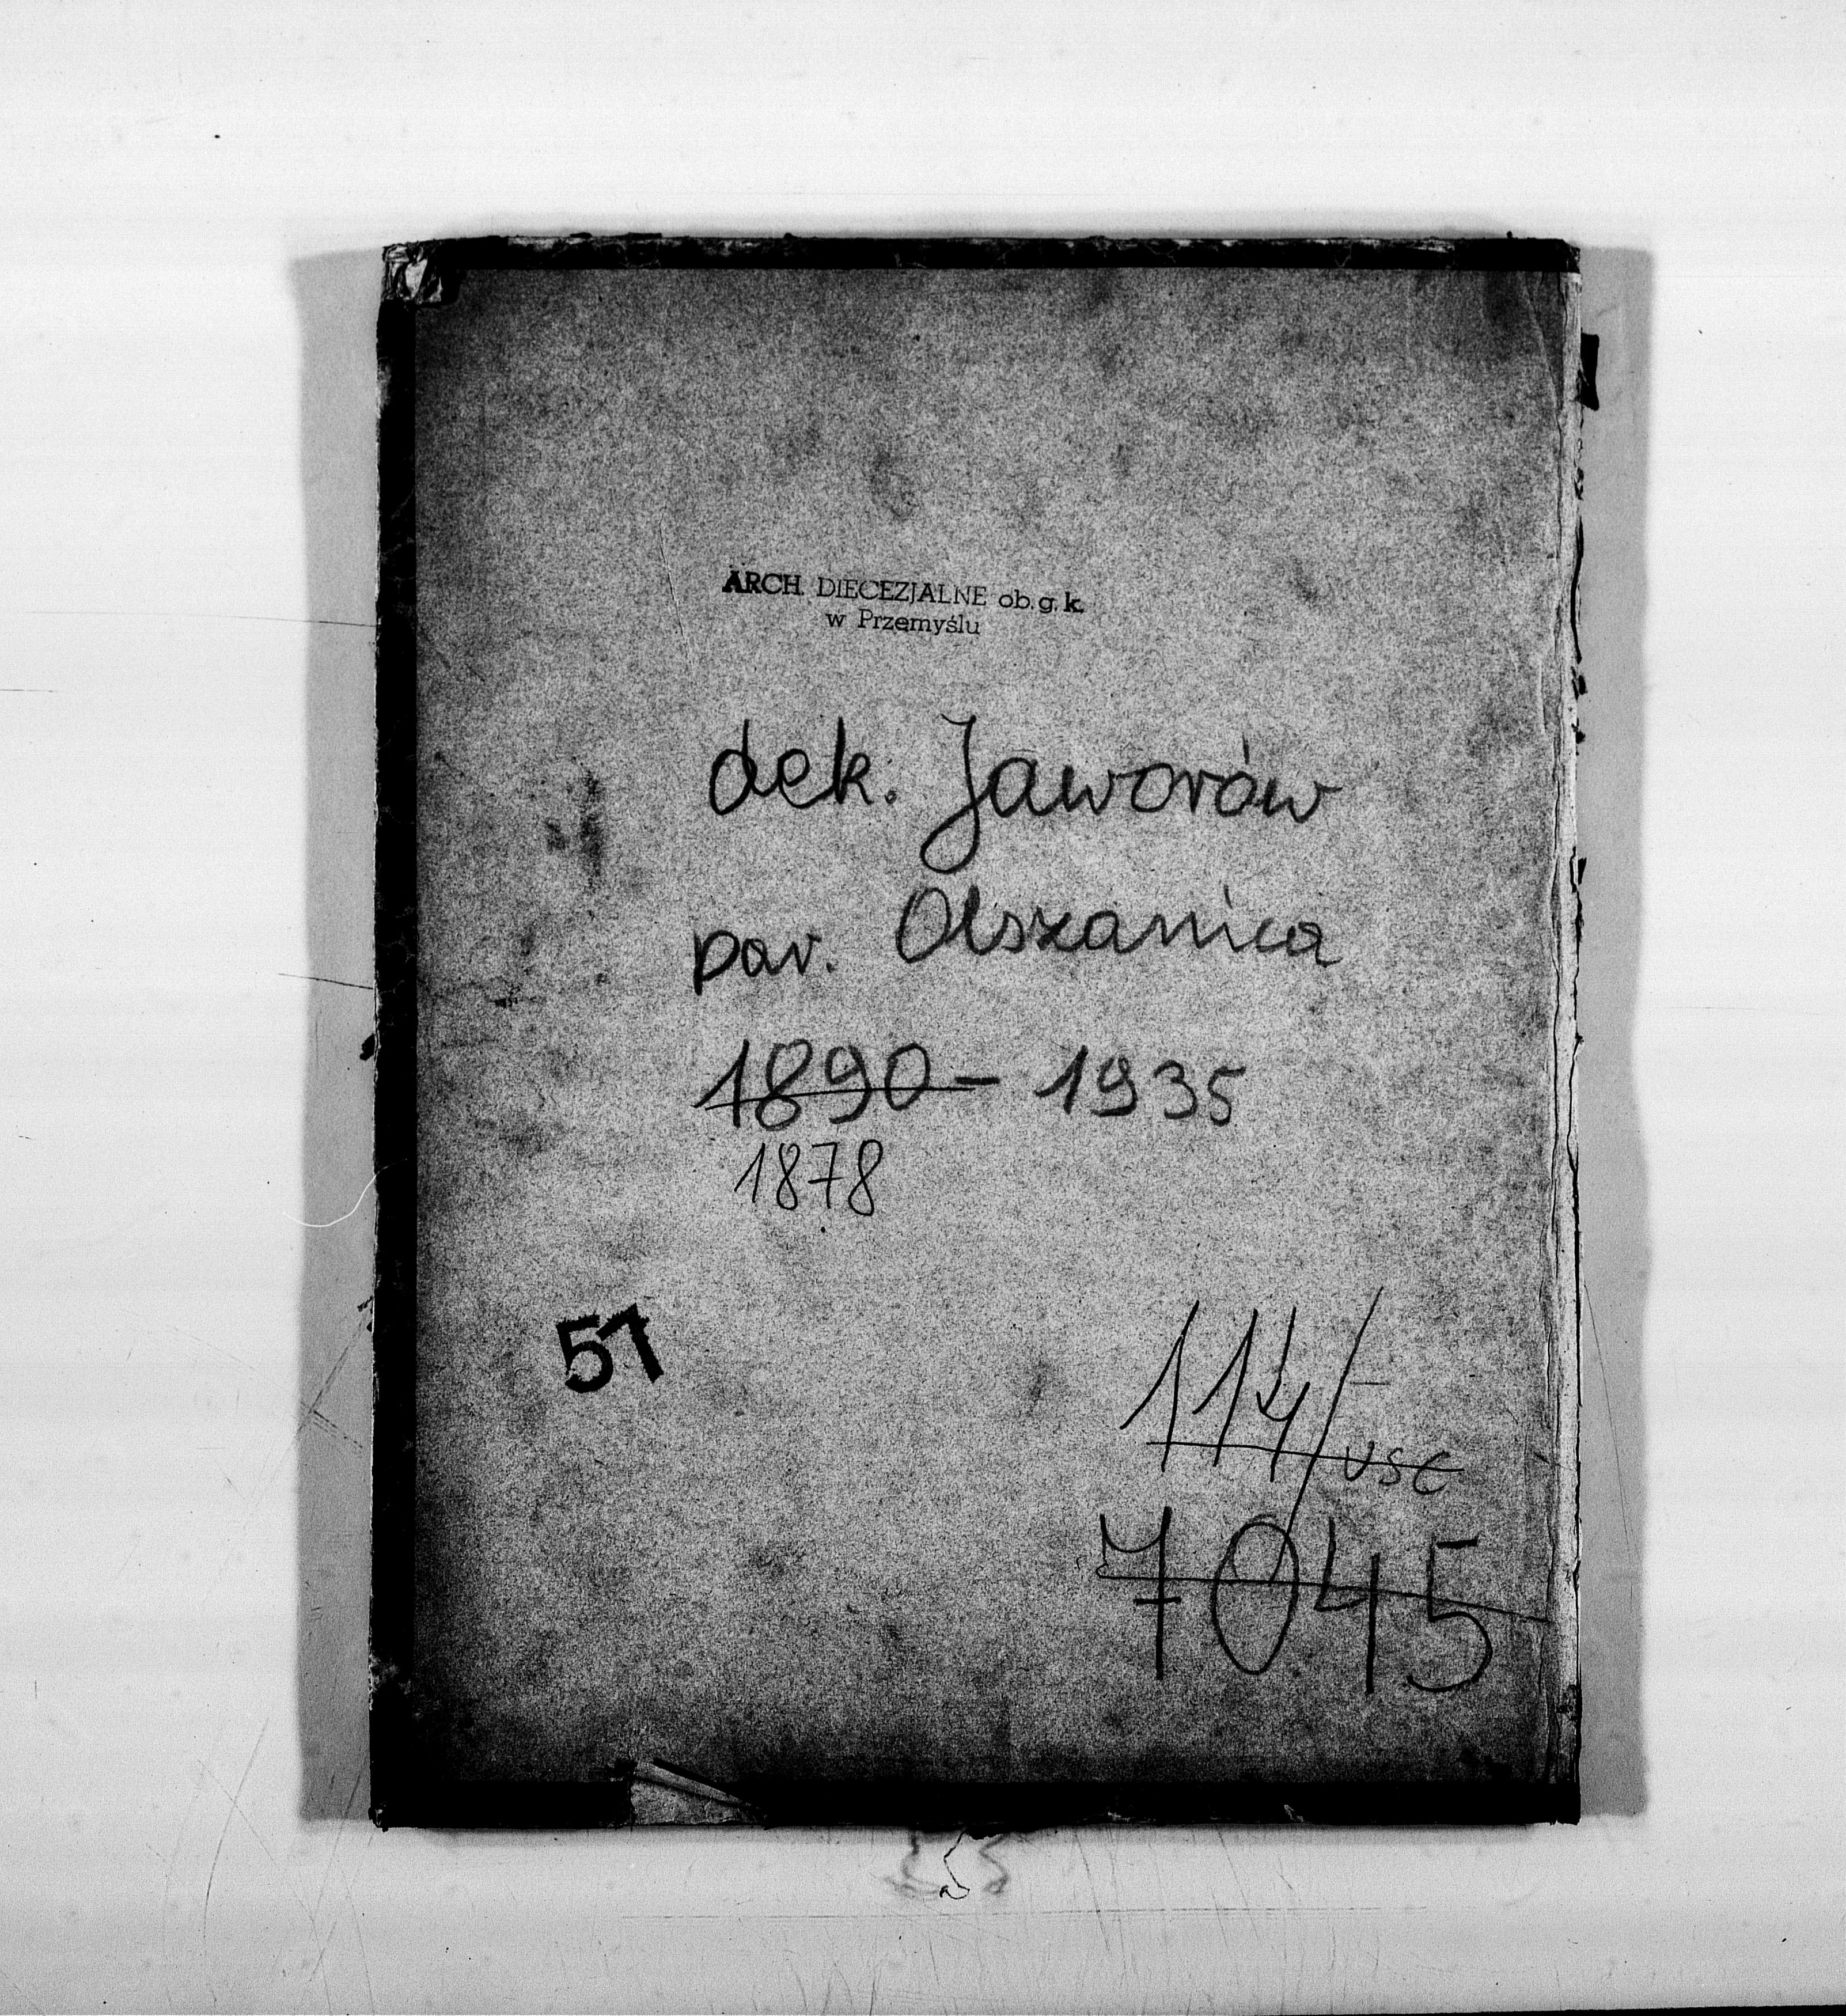 ARCH. DIECEZJALNE ob. g. k.
w Przemyślu
dek. Jaworów
par. Olszanica
1890 - 1935
1878
51
114/USC
7045